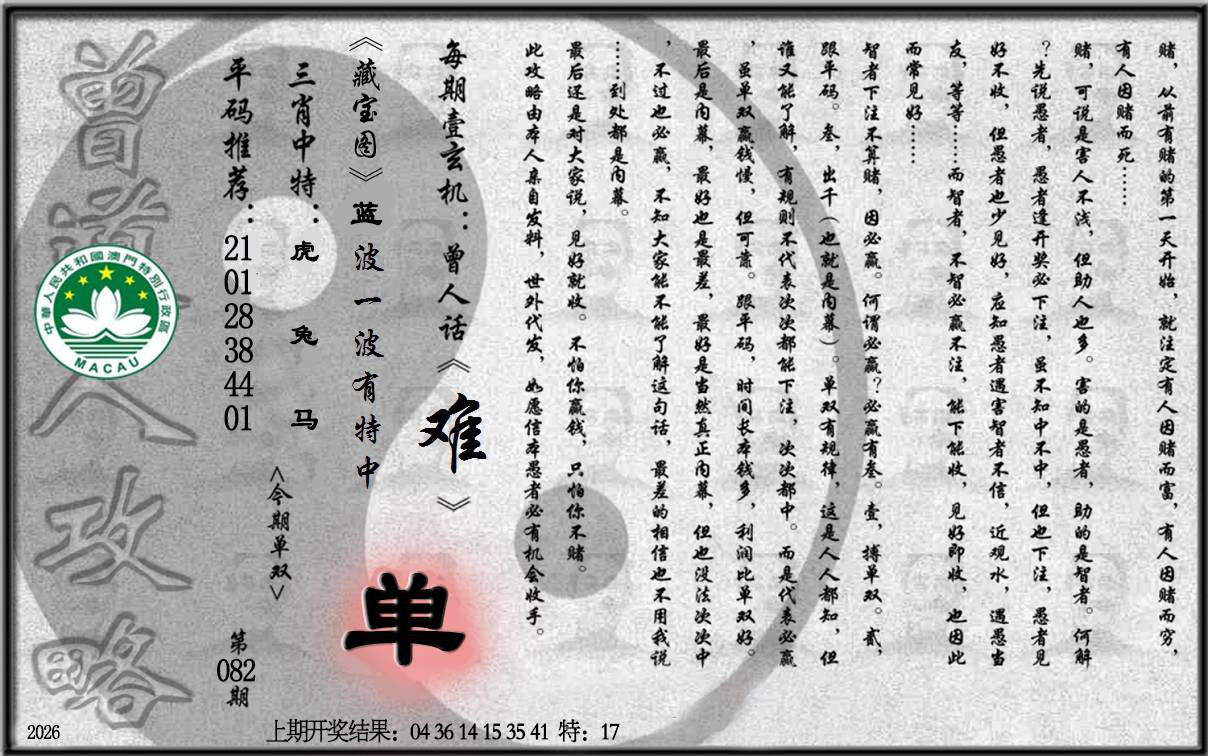 赌，从前有赌的第一天开始，就注定有人因赌而富，有人因赌而穷，
有人因赌而死……
赌，可说是害人不浅，但助人也多。害的是愚者，助的是智者。何解
？先说愚者，愚者逢开奖必下注，虽不知中不中，但也下注，愚者见
好不收，但愚者也少见好，应知愚者遇害智者不信，近观水，遇愚当
友，等等……而智者，不智必赢不注，能下能收，见好即收，也因此
而常见好……
智者下注不算赌，因必赢。何谓必赢？必赢有叁。壹，搏单双。贰，
跟平码。叁，出千（也就是内幕）。单双有规律，这是人人都知，但
谁又能了解，有规则不代表次次都能下注，次次都中。而是代表必赢
，虽单双赢钱慢，但可靠。跟平码，时间长本钱多，利润比单双好。
最后是内幕，最好也是最差，最好是当然真正内幕，但也没法次次中
，不过也必赢，不知大家能不能了解这句话，最差的相信也不用我说
……到处都是内幕。
最后还是对大家说，见好就收。不怕你赢钱，只怕你不赌。
此攻略由本人亲自发料，世外代发，如愿信本愚者必有机会收手。
每期壹玄机：曾人话《难》
《藏宝图》蓝波一波有特中
三肖中特：虎兔马
平码推荐：21 01 28 38 44 01
<今期单双>
单
第082期
曾道人攻略
中華人民共和國澳門特別行政區
MACAU
2026
上期开奖结果：04 36 14 15 35 41 特：17